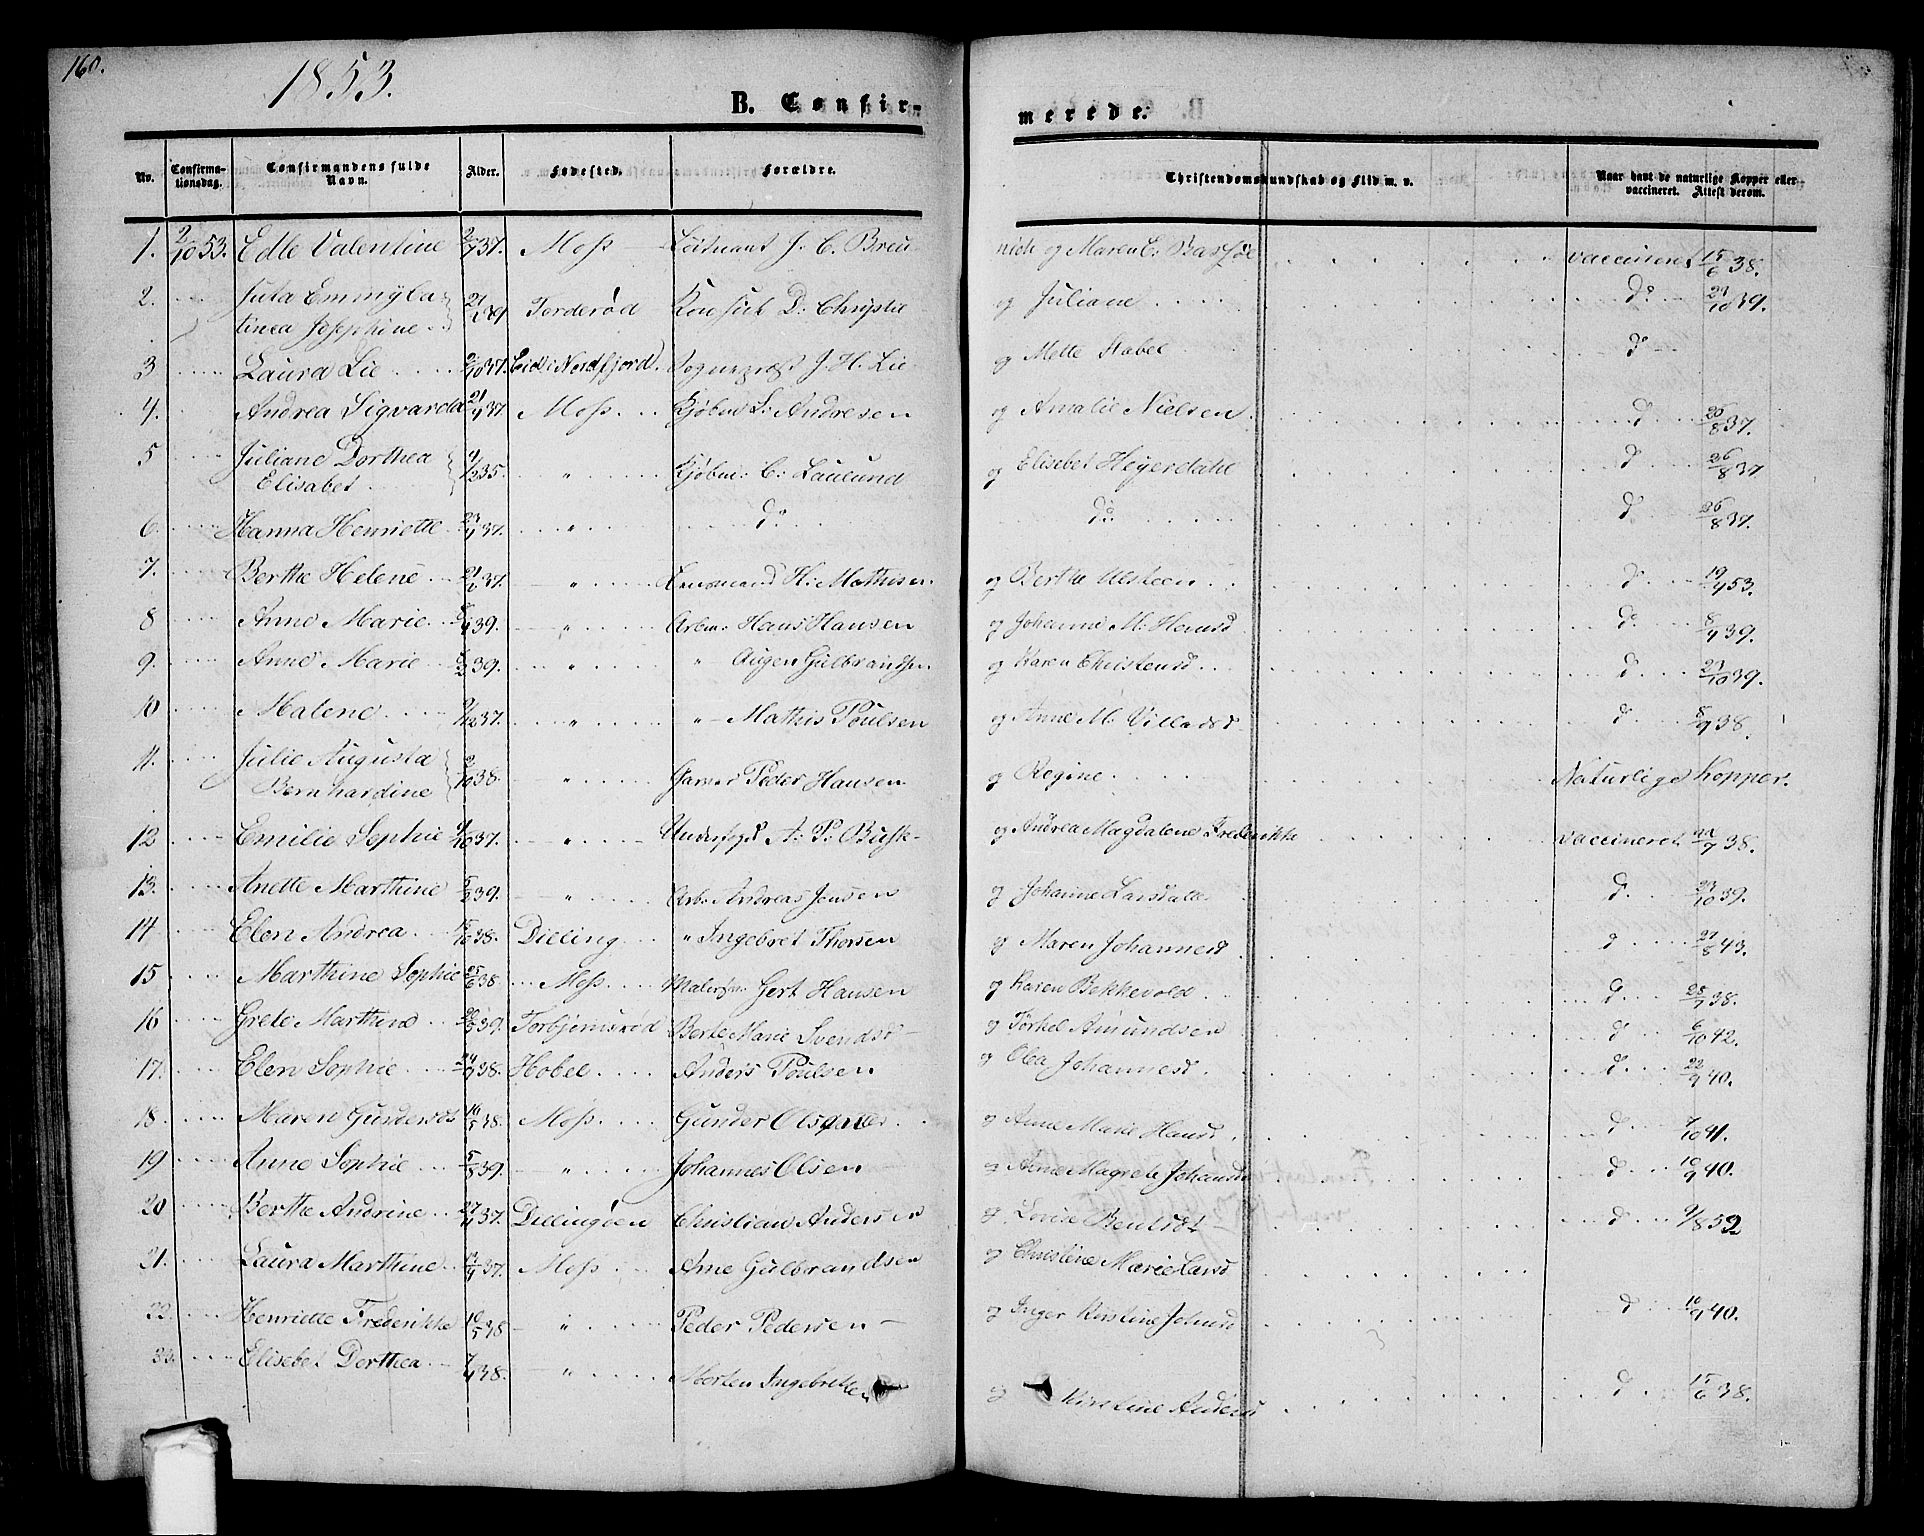 160.
1853.
B. Confir- merede:
Nr. Confirmationsdag. Confirmandens fulde Navn. Alder. Fødested. Forældre. Christendomskundskab og Flid m. v. Naar havt de naturlige Kopper eller vaccineret. Attest derom.
1. 2/10 53. Edle Valentine 37. Moss Løitnant J. C. Breu nich og Maren E: vaccineret 15/6 38.
2. Juta Emmy
tinea Josephine 39 Torderød D: Christie og Juliane do 39.
3 Laura Lie 37. Eid i Nordfjord. Sognepræst J. H. Lie og Mette Stabel d
4. Andrea Sigvarda 21/ 37 Moss Kjøbm S: Andresen og Amalie Nielsen d 26/8 37.
5 Juliane Dorthea
Elisabet 35. " Kjøbm: C: Laulund og Elisebet Heyerdahl d 26/8 37
6. Hanna Henriette 37. " do do d 26/8 37.
7. Berthe Helene 21/ 37. " H: Mathisen. og Berthe Ulsteen d 19/ 53.
8 Anne Marie 39. " Arbm: Hans Hansen og Johanne M: Hansd do 8/9 39.
9. Anne Marie 39. " " Augen Gulbrandsen og Karen Christensd d 39.
10 Malene 37. " " Mathis Poulsen og Anne M: Villadsd d 8/9 38.
11. Julie Augusta
Bernhardine 2/10 38. " Peder Hansen og Regine Naturlige Kopper.
12 Emilie Sophie 37. " Underfoged A: P: Busk og Andrea Magdalene Frederikke vaccineret 38.
13. Anette Marthine 39. " Arb: Andreas Jensen og Johanne Larsdatt. d 39.
14 Elen Andrea 38. Dilling " Ingebret Thorsen og Maren Johannesd d 27/8 43.
15 Marthine Sophie 25/6 38 Moss Gert Hansen og Karen Bekkevold d 38.
16 Grete Marthine 39. Torbjørnsrød Berte Marie Svendsd og Torkel Amundsen d 6/10 42.
17. Elen Sophie 38. Hobøl Anders Poulsen og Olea Johannesd d 22/9 40.
18. Maren Gundersd 16/5 38. Moss Gunder Olsen og Anne Marie Hansd d /10 41.
19 Anne Sophie 39. " Johannes Olsen og Anne Magrete Johansd d 10/9 40.
20 Berthe Andrine 37. Dillingøen Christian Andersen og Lovise Bentsdt d 9/8 52
21. Laura Marthine 37. Moss Arne Gulbrandsen og Christine Marie Larsd
22. Henriette Frederikke 10/5 38 " Peder Pedersen og Inger Kirstine Johnsd d 10/9 40.
33. Elisebet Dorthea 38. " Morten Ingebretse og Kirstine Andersd d 15/6 38.